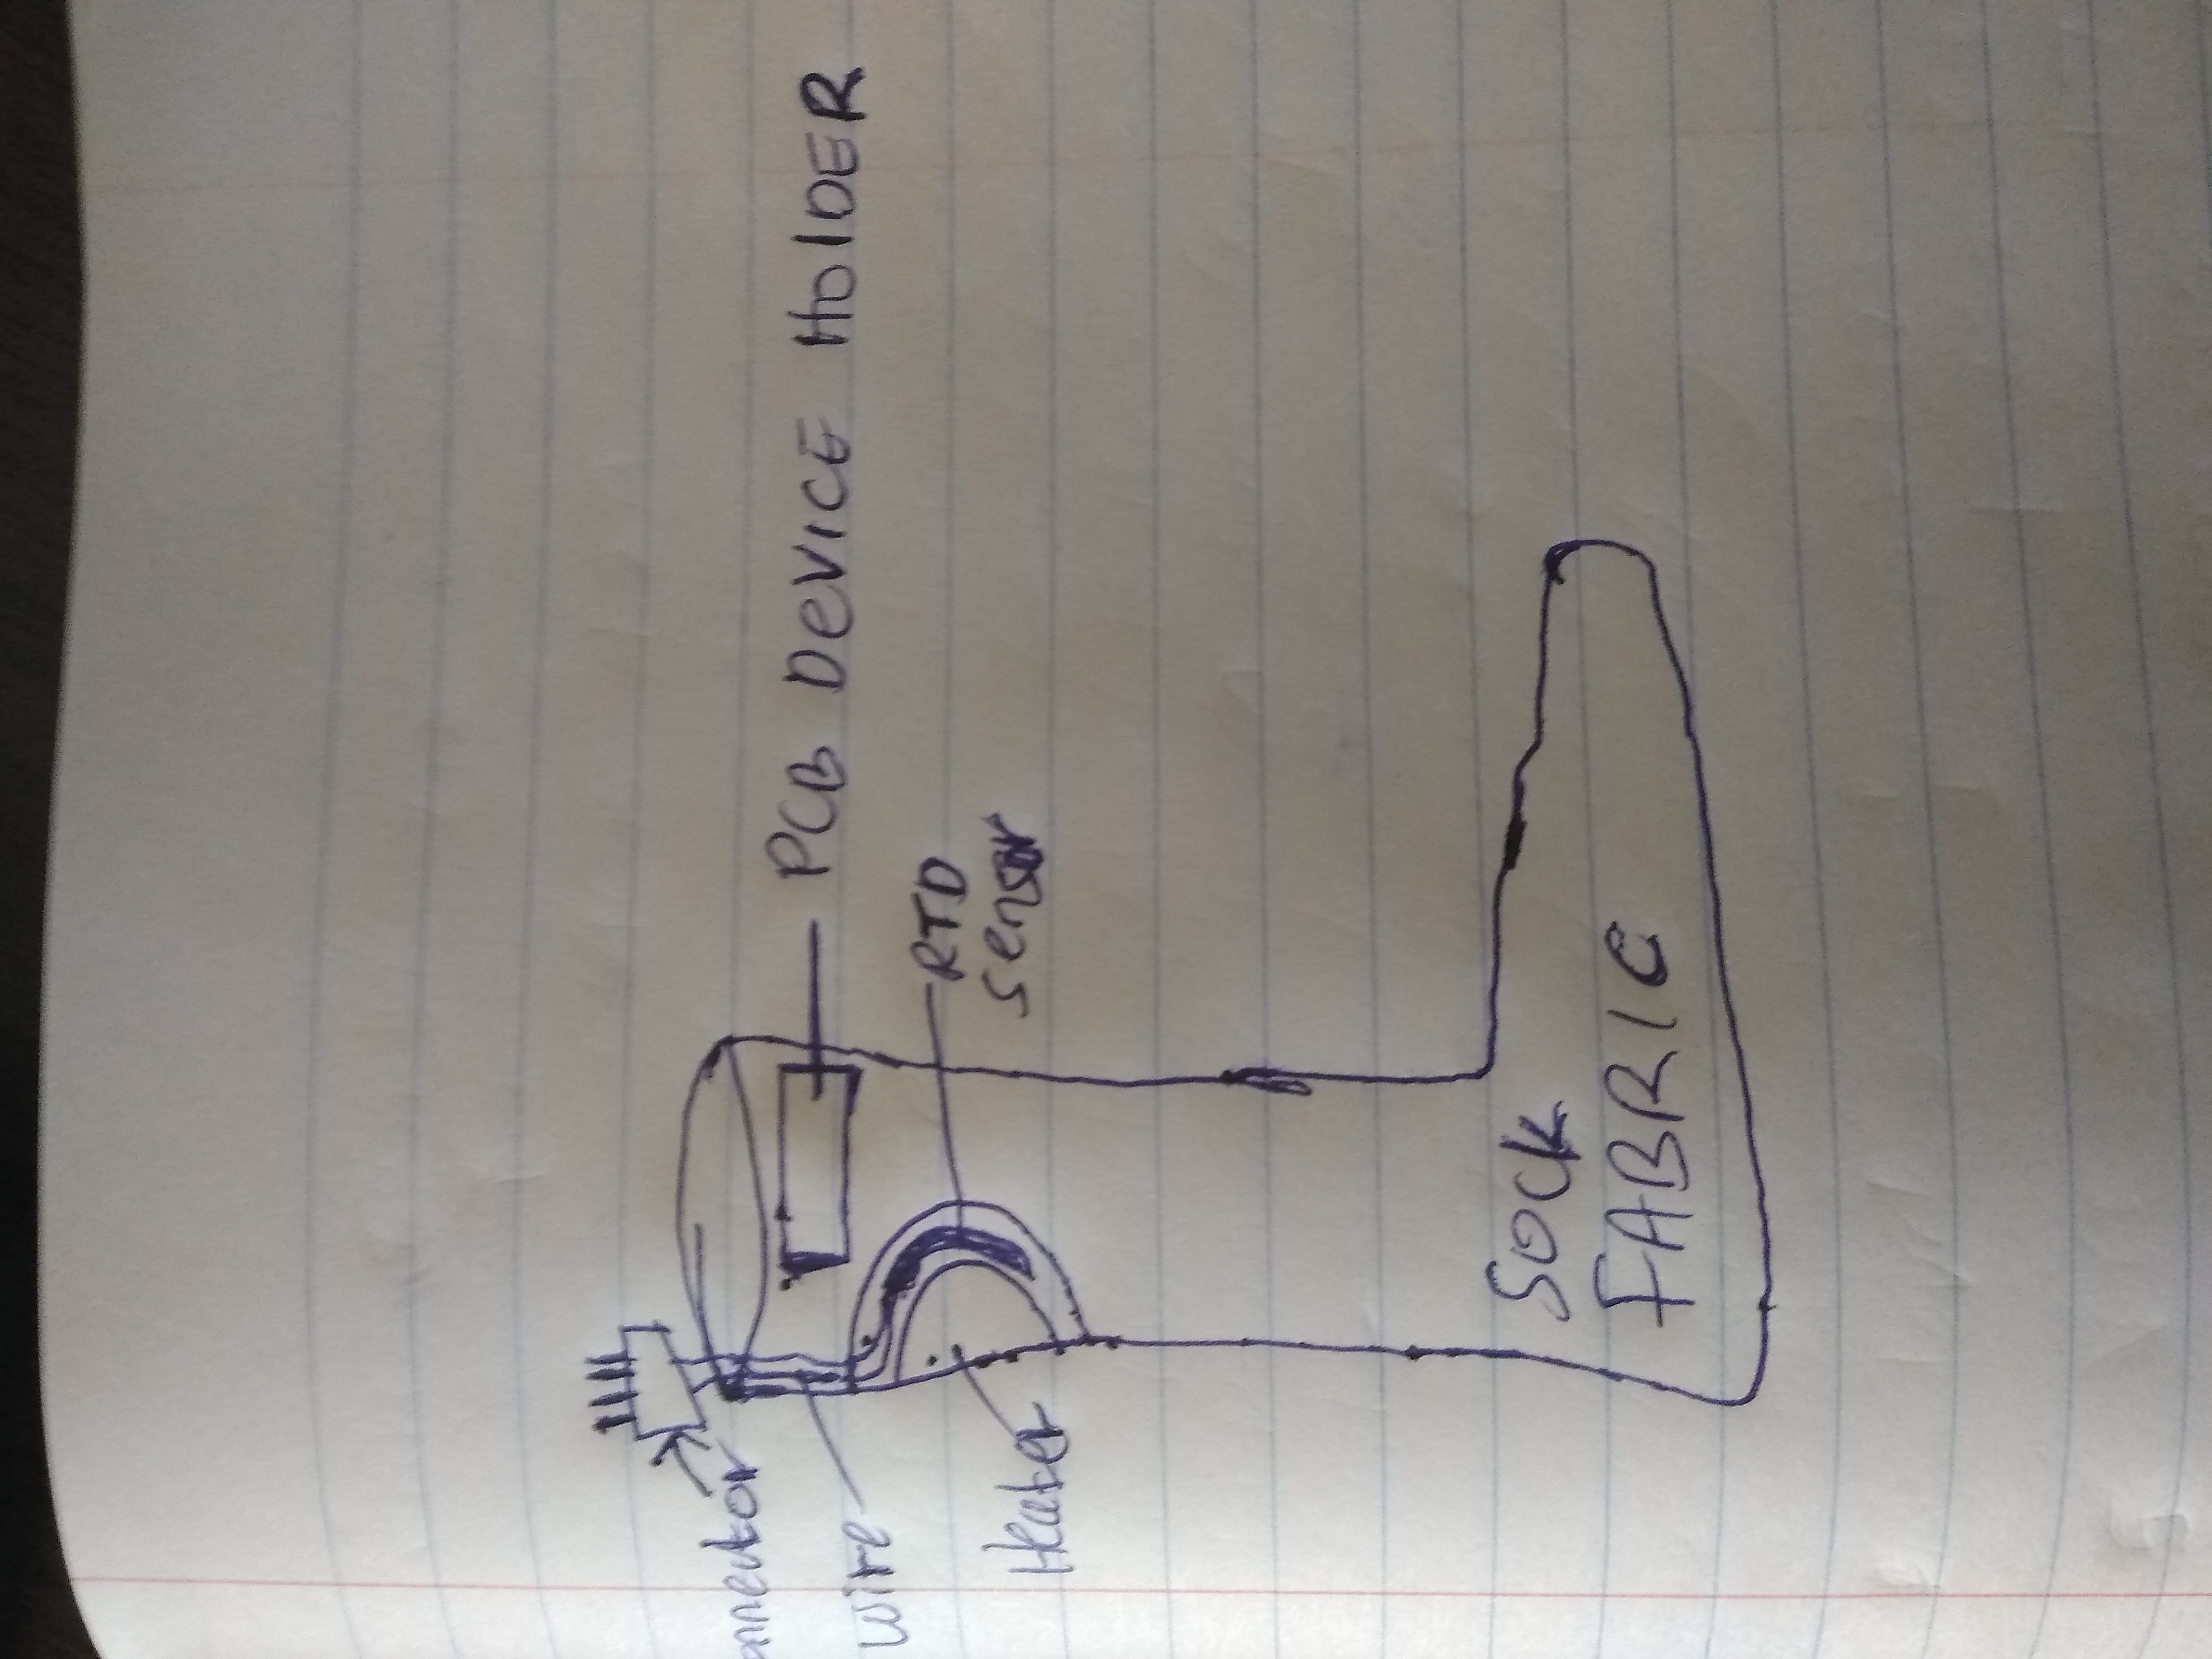 onnector
PCB DEVICE HOLDER
wire
RTD
sensor
Heater
SOCK
FABRIC